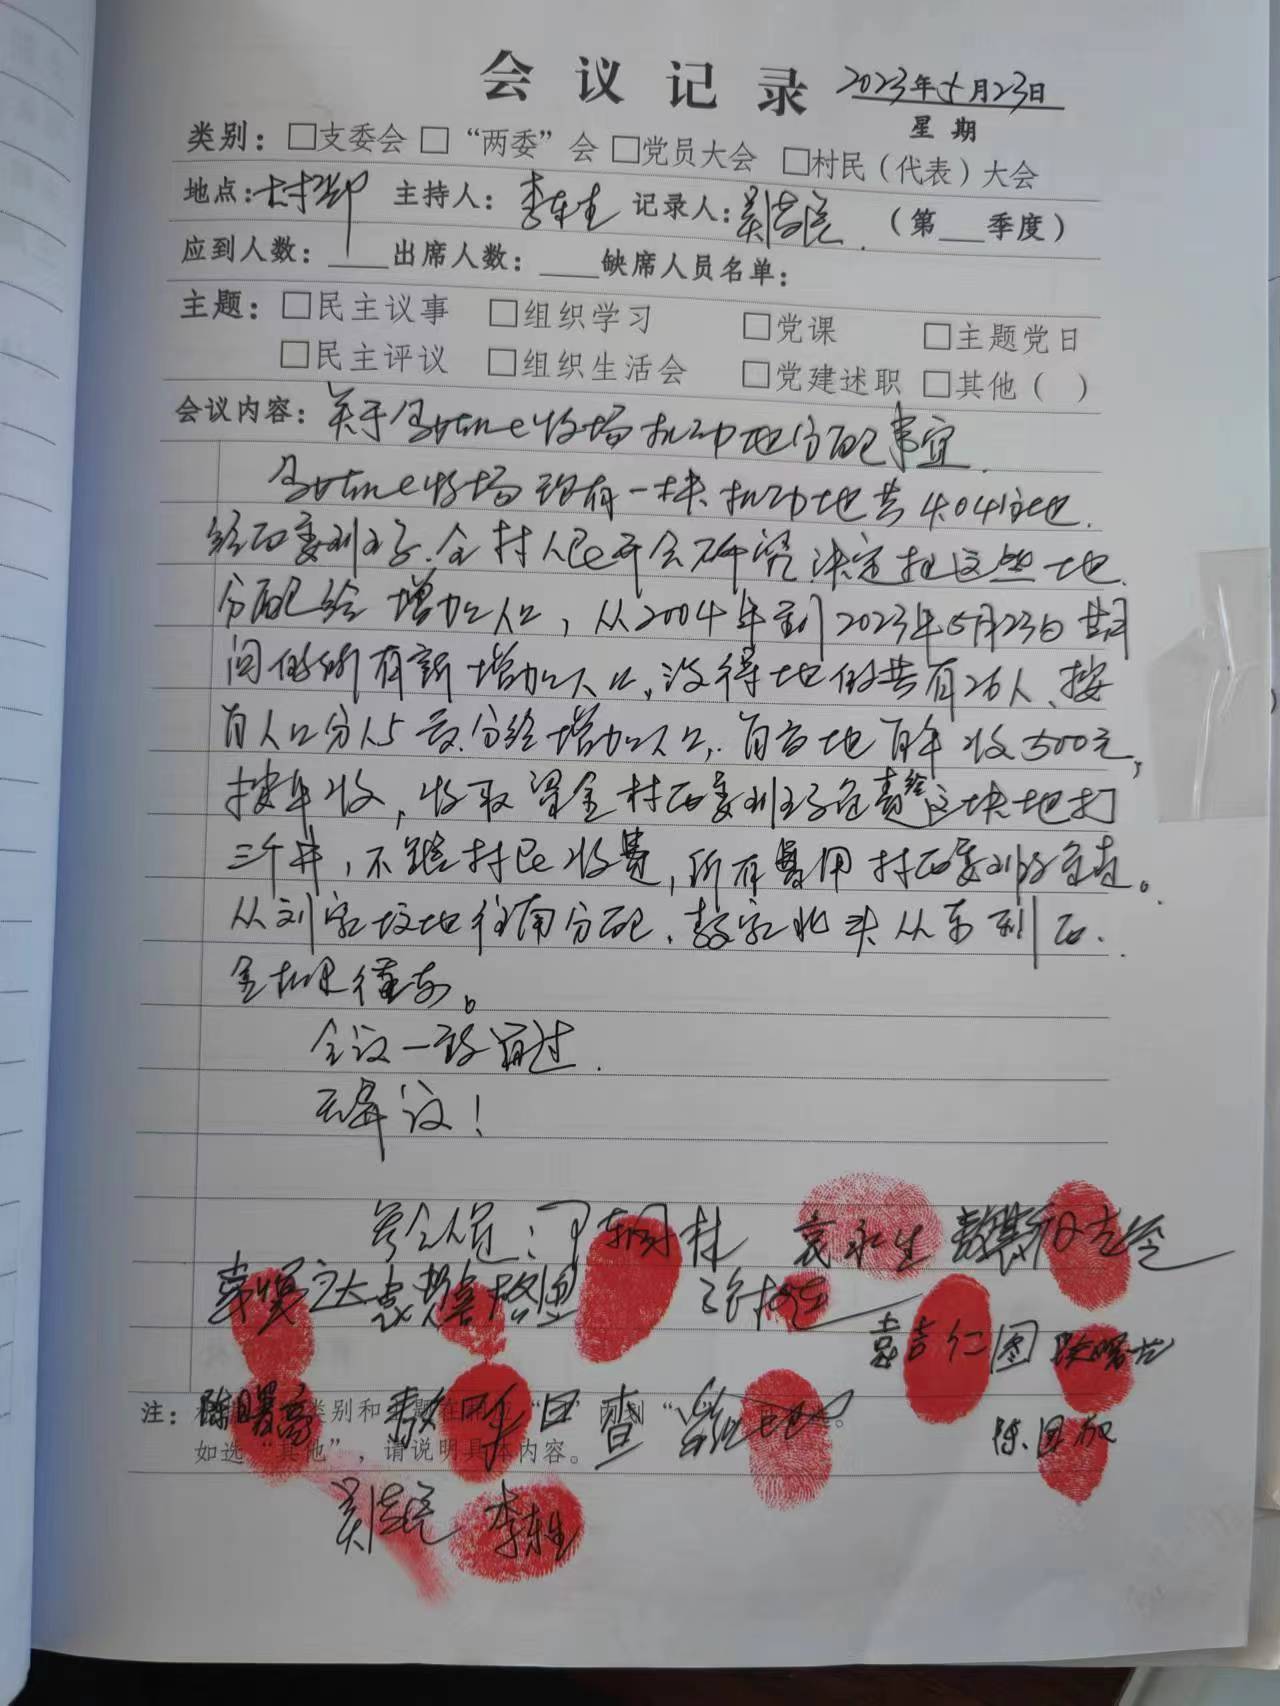 会议记录 2023年5月23日
星期
类别：□支委会 □“两委”会 □党员大会 □村民（代表）大会
地点：村部 主持人：李东生 记录人：（第 季度）
应到人数： 出席人数： 缺席人员名单：
主题：□民主议事 □组织学习 □党课 □主题党日
□民主评议 □组织生活会 □党建述职 □其他（ ）
会议内容：关于 牧场机动地分配事宜.
牧场现有一块机动地共4041亩地.
经两委班子.全村人民开会研究决定把这些土地.
分配给增加人口，从2004年到2023年5月23日期
间的所有新增加人口，没得地的共有26人、按
每人口分15亩.分给增加人口，每亩地每年收500元，
按年收，收取 金村两委班子负责给这块地打
三个井，不跟村民收费，所有费用村两委班子负责。
从刘家坟地往南分配、 北头从东到西.
会议一致通过.
无异议！
参会人员： 袁永生
袁吉仁图 陈曙光
注： 类别和 题在 “ ” 内划“ ”。
陈曙亮
如选“其他”，请说明具体内容。
陈国加
李东生